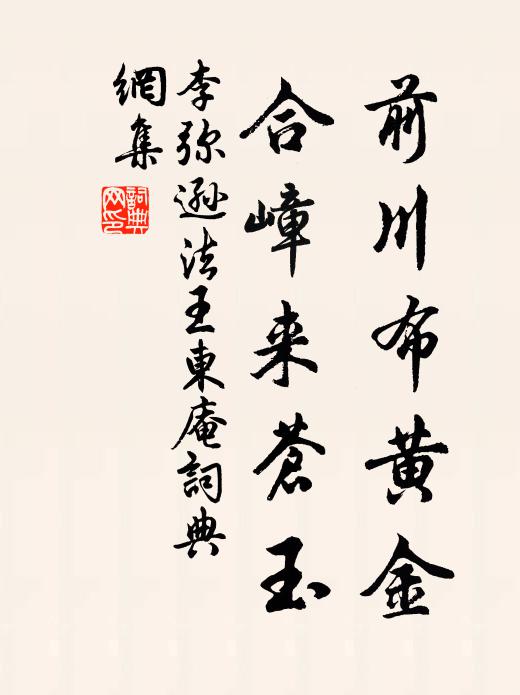 前川布黄金
合嶂来蒼玉
李弥遜法王東庵詞典
網集
詞典
网印